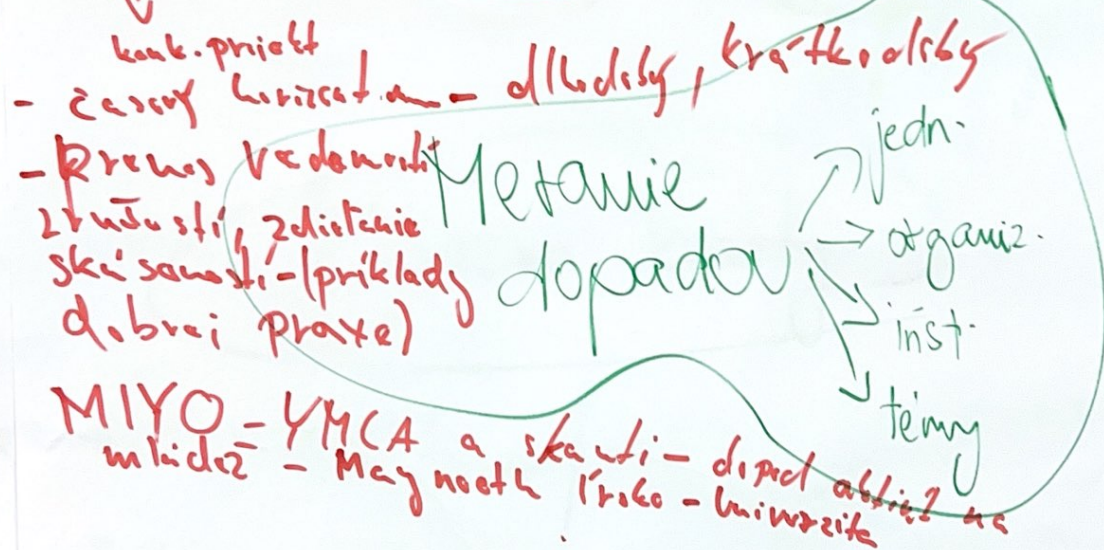 konk. projekt
- časový horizont - dlhodobý, krátkodobý
- Prenos vedomostí
zručností, zdieľanie
skúseností - (príklady
dobrej praxe)
Meranie
dopadov
jedn.
organiz.
inšt.
témy
MIYO - YMCA a skauti - dopad aktivít na
mládež - Maynooth Írsko - Univerzita